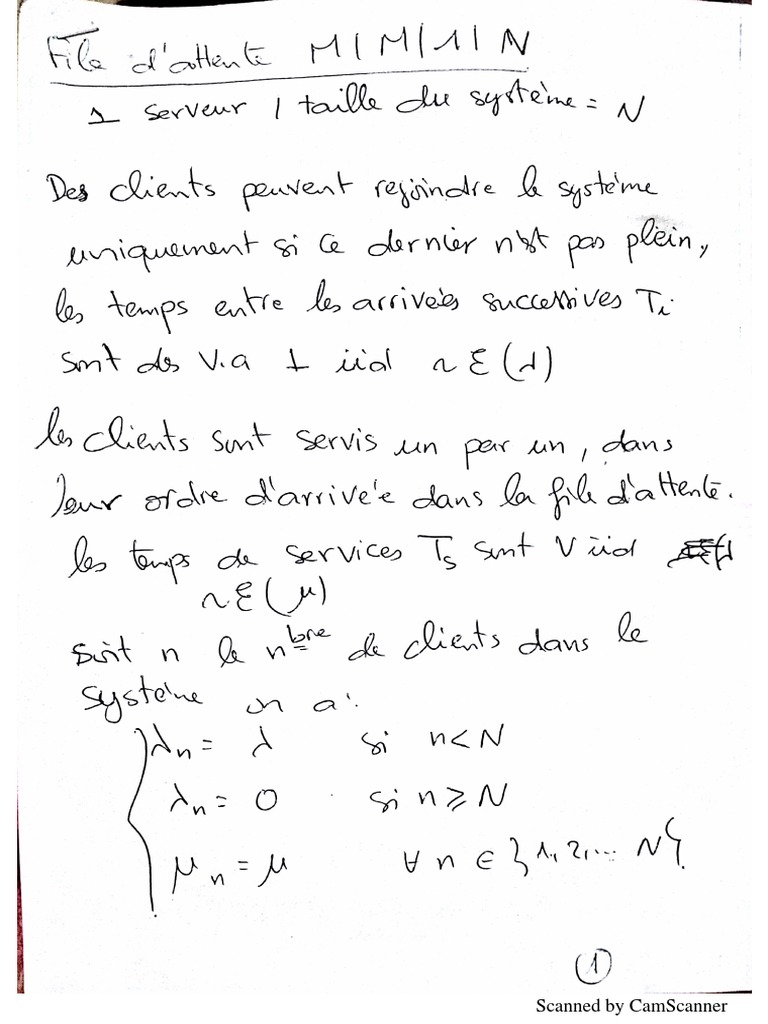 File d'attente M/M/1/N
1 serveur / taille du système = N
Des clients peuvent rejoindre le système
uniquement si ce dernier n'est pas plein,
les temps entre les arrivées successives Ti
sont des v.a ⊥ iid ~ Ɛ(λ)
les clients sont servis un par un, dans
leur ordre d'arrivée dans la file d'attente.
les temps de services Ts sont V iid
~ Ɛ(μ)
soit n le nbre de clients dans le
système on a :
λn = λ si n < N
λn = 0 si n ≥ N
μn = μ ∀ n ∈ {1, 2, ... N}
1
Scanned by CamScanner